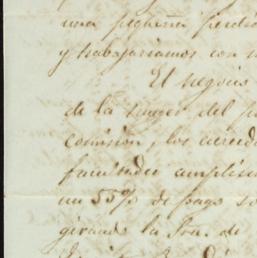 una pequeña perdi
y trabajariamos con
El negocio
de la muger del
comision, los acreed
facultades amplisi
un 55% de pago so
girando la Sra. de